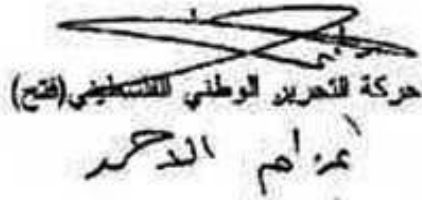 حركة التحرير الوطني الفلسطيني (فتح)
عزام الاحمد